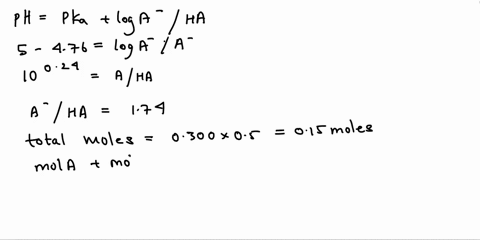 pH = Pka + log A⁻/HA
5 - 4.76 = log A⁻/A⁻
10^0.24 = A/HA
A⁻/HA = 1.74
total moles = 0.300 × 0.5 = 0.15 moles
mol A + mo